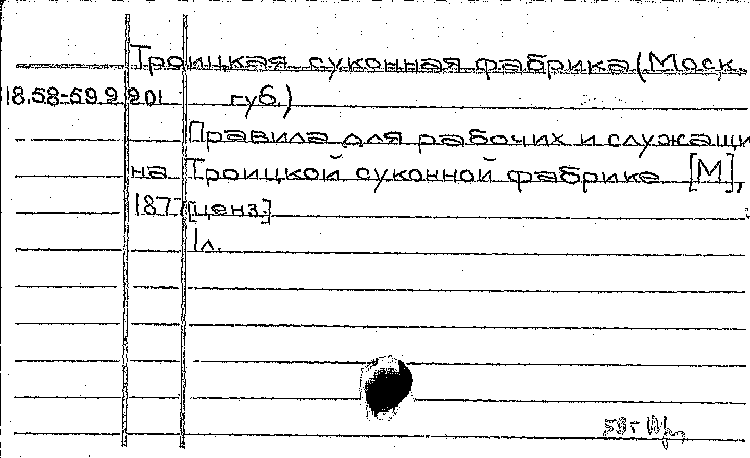 Троицкая суконная фабрика (Моск.
18.58-59.9.201 губ.)
Правила для рабочих и служащи
на Троицкой суконной фабрике [М],
1877 [ценз.]
1л.